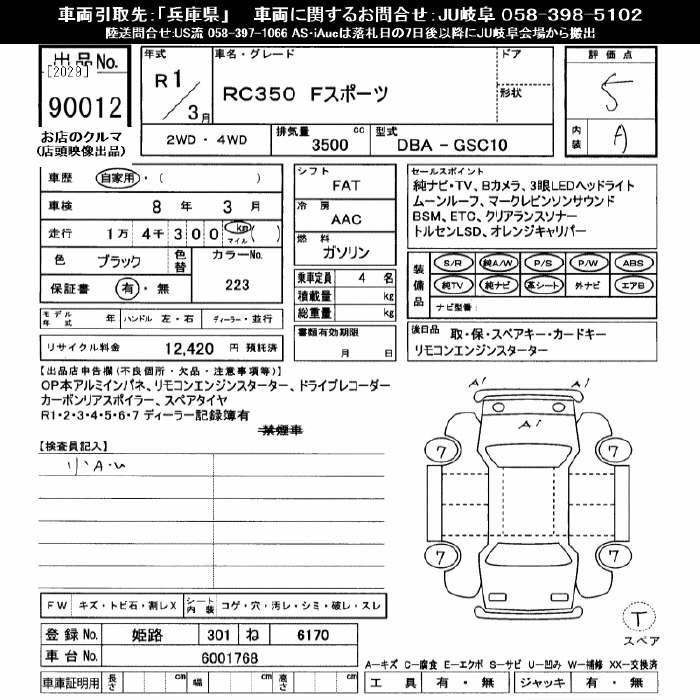 車両引取先:「兵庫県」 車両に関するお問合せ:JU岐阜 058-398-5102
陸送問合せ:US流 058-397-1066 AS-iAucは落札日の7日後以降にJU岐阜会場から搬出
出品No.
[2029]
90012
お店のクルマ
(店頭映像出品)
年式
R1/3月
車名・グレード
RC350 Fスポーツ
ドア
形状
評価点
5
内装
A
2WD・4WD
排気量
3500 cc
型式
DBA - GSC10
車歴 自家用・( )
車検 8年 3月
走行 1万 4千 300 km マイル ( )
色 ブラック
色替
カラーNo.
223
保証書 有・無
モデル年式 年 ハンドル 左・右 ディーラー・並行
リサイクル料金 12,420 円 預託済
シフト
FAT
冷房
AAC
燃料
ガソリン
乗車定員 4 名
積載量 kg
総重量 kg
書類有効期限
月 日
セールスポイント
純ナビ・TV、Bカメラ、3眼LEDヘッドライト
ムーンルーフ、マークレビンソンサウンド
BSM、ETC、クリアランスソナー
トルセンLSD、オレンジキャリパー
装備品
S/R 純A/W P/S P/W ABS
純TV 純ナビ 革シート 外ナビ エアB
ナビ型番:
後日品 取・保・スペアキー・カードキー
リモコンエンジンスターター
【出品店申告欄(不良個所・欠品・注意事項等)】
OP本アルミインパネ、リモコンエンジンスターター、ドライブレコーダー
カーボンリアスポイラー、スペアタイヤ
R1・2・3・4・5・6・7 ディーラー記録簿有
禁煙車
【検査員記入】
小A・U
A1
A1
A1
7
7
7
7
T
スペア
FW キズ・トビ石・割レX
シート内装 コゲ・穴・汚レ・シミ・破レ・スレ
登録No. 姫路 301 ね 6170
車台No. 6001768
車庫証明用 長さ cm 幅 cm 高さ cm
A−キズ C−腐食 E−エクボ S−サビ U−凹み W−補修 XX−交換済
工具 有・無 ジャッキ 有・無